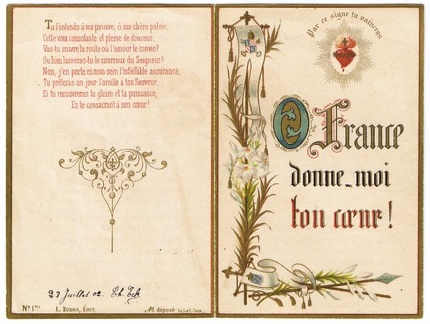 Tu l'entends ô ma pauvre, ô ma chère patrie,
Cette voix consolante et pleine de douceur.
Vas-tu suivre la route où l'amour te convie?
Ou bien lasseras-tu le courroux du Seigneur?
Non, j'en porte en mon sein l'infaillible assurance,
Tu prêteras un jour l'oreille à ton Sauveur,
Et tu recouvreras la gloire et la puissance,
En te consacrant à son cœur!
23 Juillet 02.
Nº 1
Edit.
M. déposé
Par ce signe tu vaincras
O France
donne-moi
ton cœur!